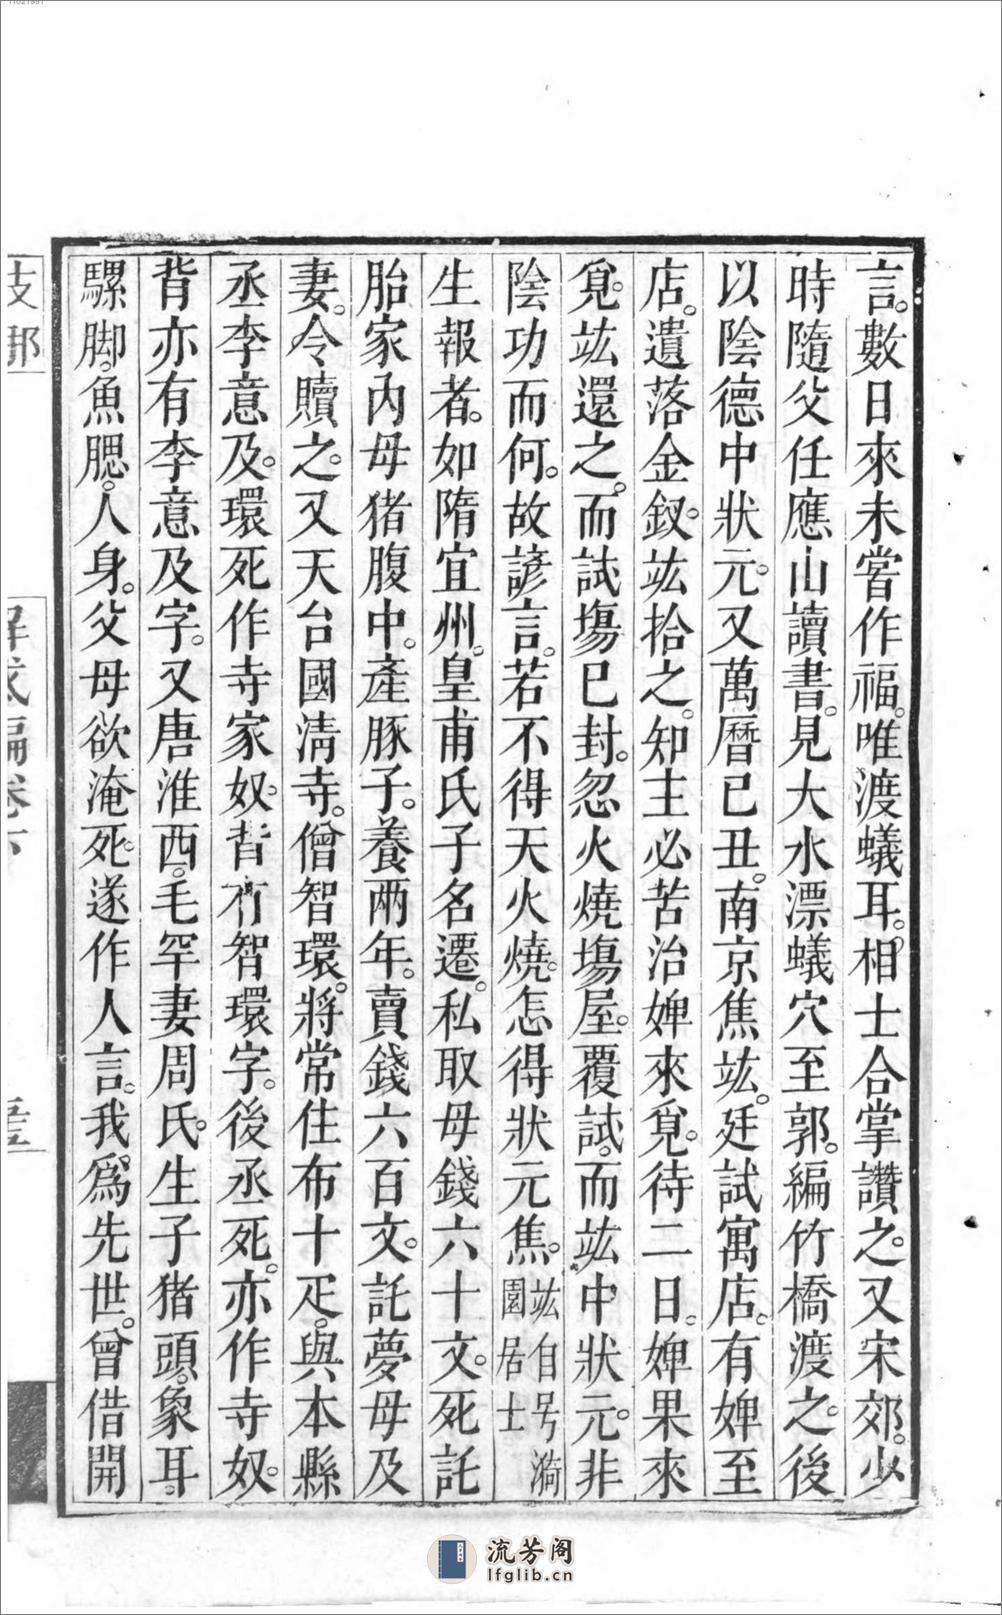 言。數日來未嘗作福。唯渡蟻耳。相士合掌讚之。又宋郊。少
時隨父任應山讀書。見大水漂蟻穴至郭。編竹橋渡之。後
以陰德中狀元。又萬曆已丑。南京焦竑。廷試寓店。有婢至
店。遺落金釵。竑拾之。知主必苦治婢來覓。待二日。婢果來
覓。竑還之。而試場已封。忽火燒場屋。覆試。而竑中狀元。非
陰功而何。故諺言。若不得天火燒。怎得狀元焦。竑自号漪園居士
生報者。如隋宜州。皇甫氏子名遷。私取母錢六十文。死託
胎家內母猪腹中。產豚子。養兩年。賣錢六百文。託夢母及
妻。令贖之。又天台國清寺。僧智環。將常住布十疋。與本縣
丞李意及。環死作寺家奴。背有智環字。後丞死。亦作寺奴。
背亦有李意及字。又唐淮西。毛罕妻周氏。生子猪頭。象耳。
騾脚。魚腮。人身。父母欲淹死。遂作人言。我爲先世。曾借開
卷下
流芳阁
lfglib.cn